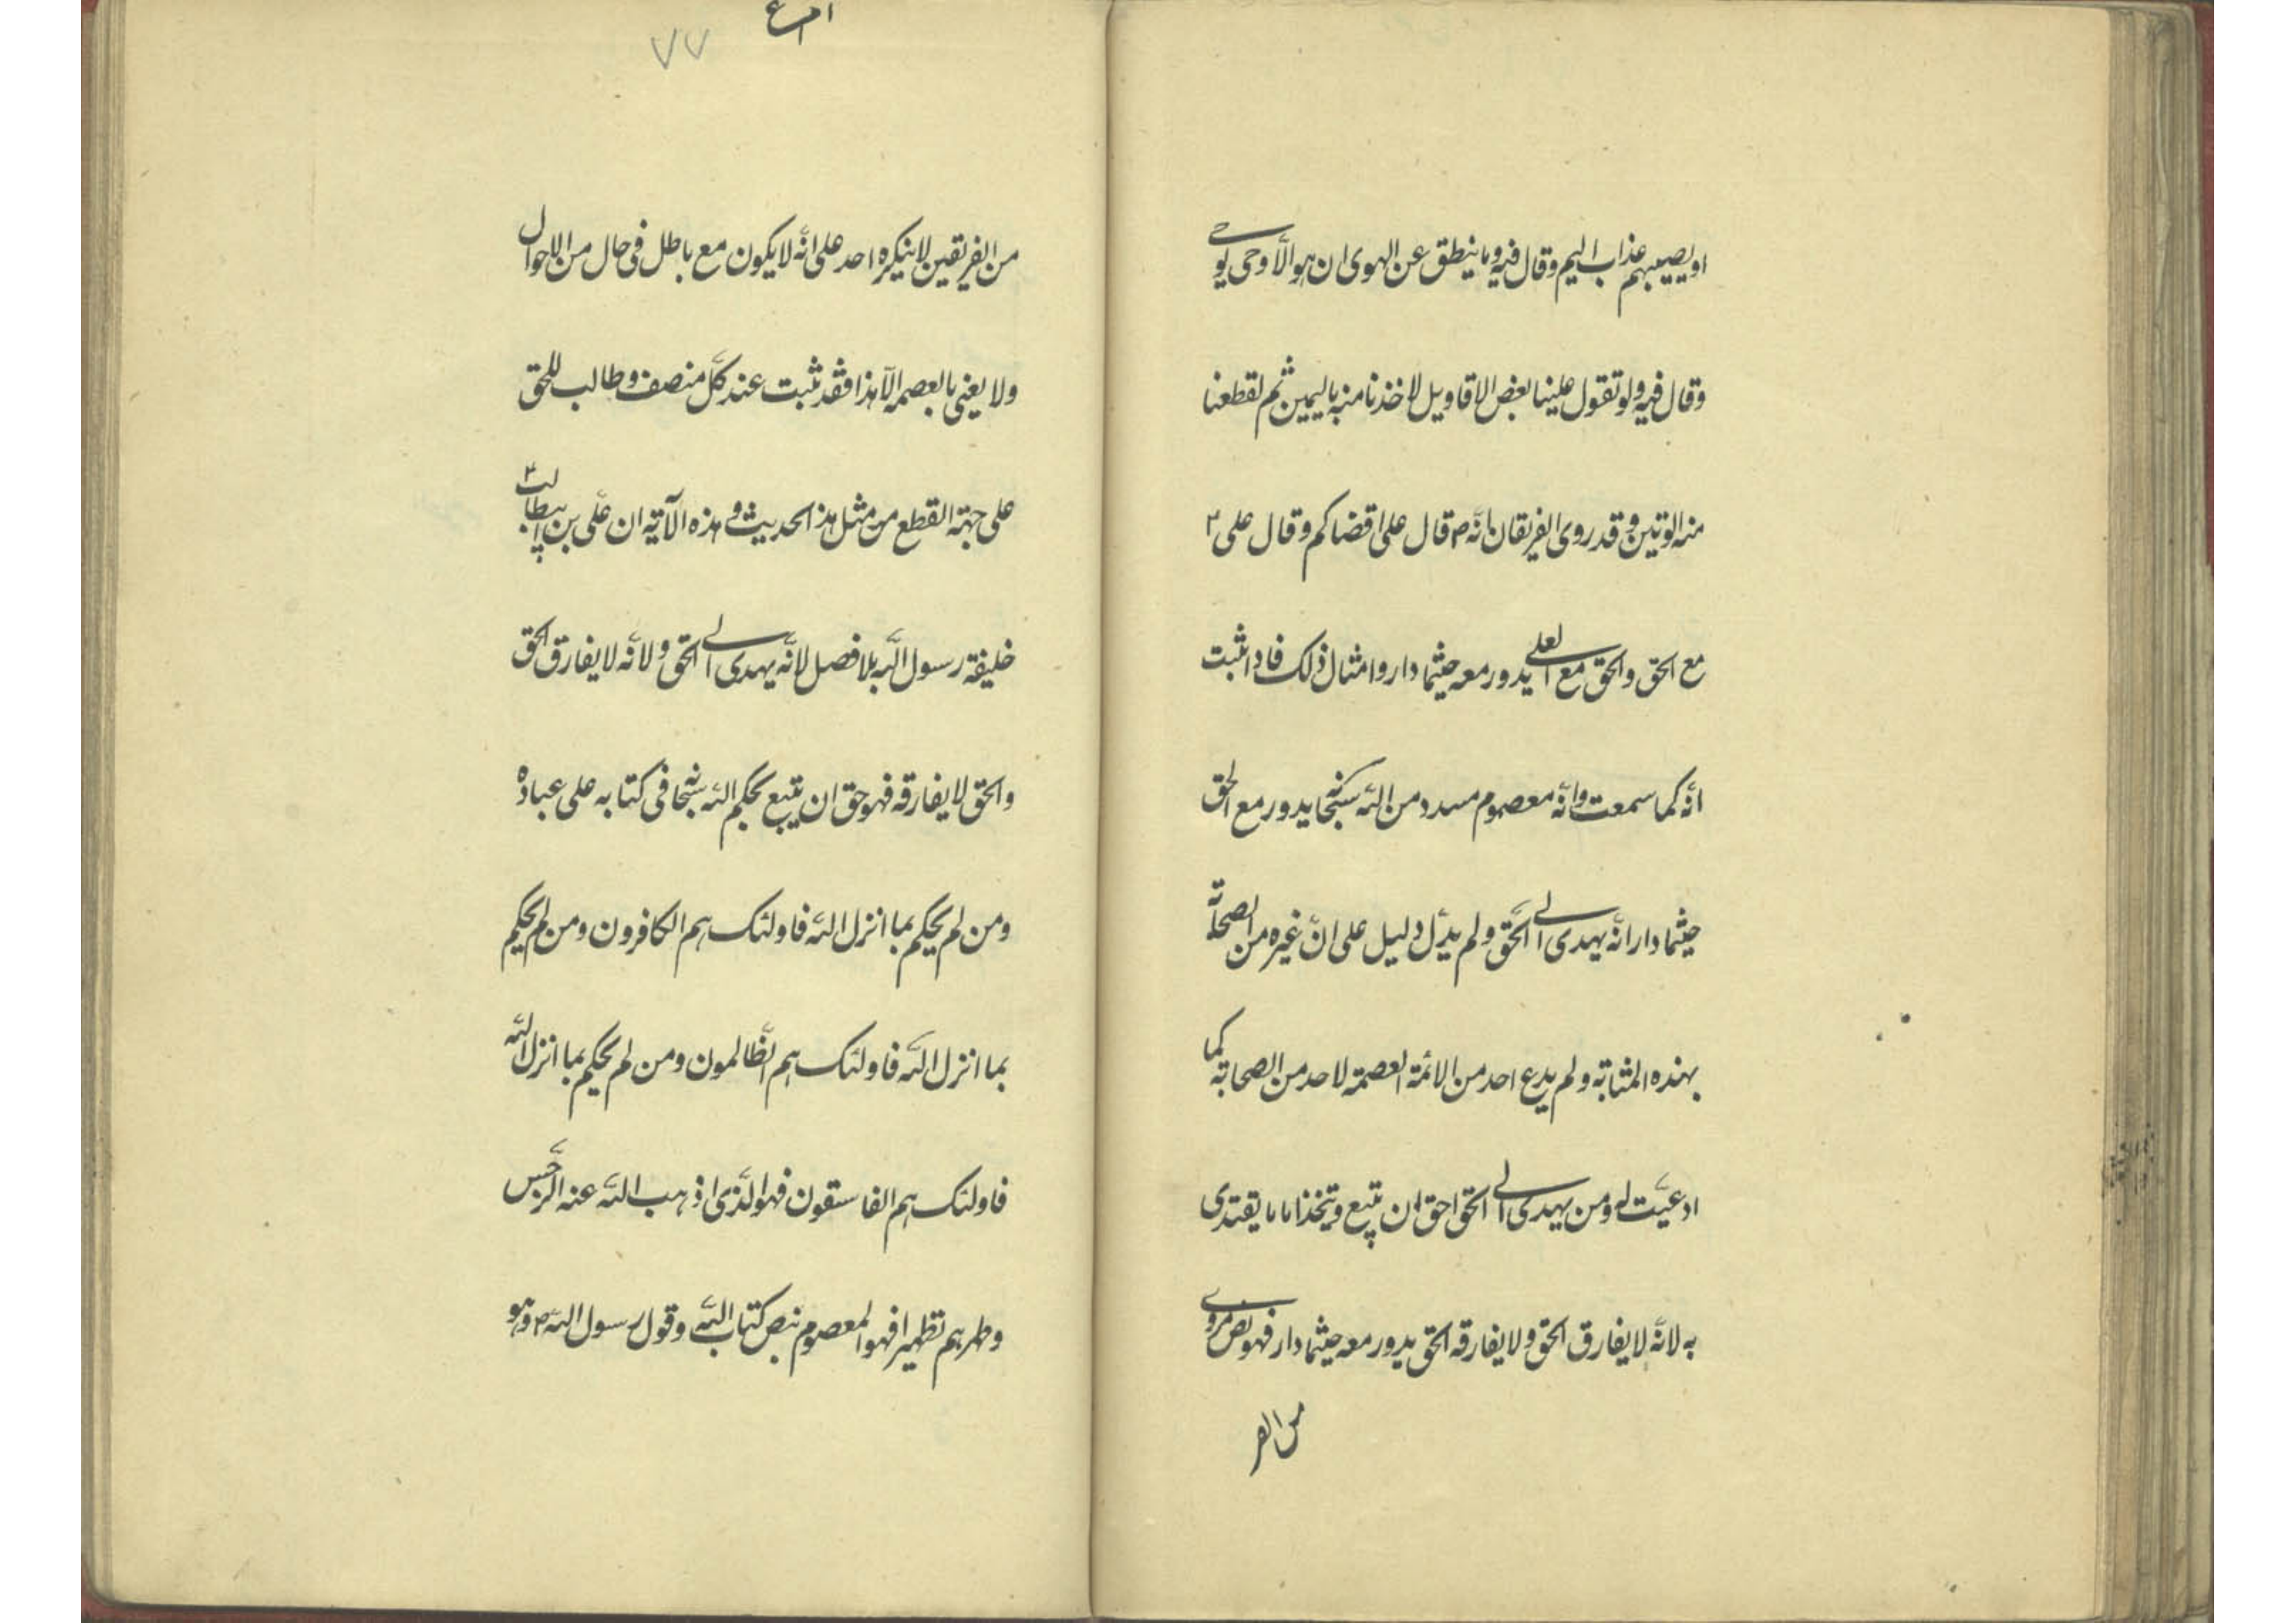 او يصيبهم عذاب اليم وقال فيه وما ينطق عن الهوى ان هو الّا وحى يوحى
وقال فيه ولو تقول علينا بعض الاقاويل لاخذنا منه باليمين ثم لقطعنا
منه الوتين وقد روى الفريقان انّه ص قال على اقضاكم وقال على ع
مع الحق والحق مع العلى يدور معه حيثما دار وامثال ذلك فاذا ثبت
انّه كما سمعت وانّه معصوم مسدد من الله سبحانه يدور مع الحق
حيثما دار انّه يهدى الى الحقّ ولم يدلّ دليل على انّ غيره من الصحابة
بهذه المثابة ولم يدع احد من الائمة العصمة لاحد من الصحابة كما
ادعيت له ومن يهدى الى الحق احق ان يتبع ويتخذ اماما يقتدى
به لانّه لا يفارق الحق ولا يفارقه الحق يدور معه حيثما دار فهو نص مروى
من الفر
٧٧
من الفريقين لا ينكره احد على انّه لا يكون مع باطل فى حال من الاحوال
ولا يعنى بالعصمة الّا هذا فقد ثبت عند كلّ منصف وطالب للحق
على جهة القطع من مثل هذا الحديث وهذه الآية ان على بن ابيطالب ع
خليفة رسول الله بلا فصل لانّه يهدى الى الحق ولانّه لا يفارق الحق
والحق لا يفارقه فهو حق ان يتبع بحكم الله سبحانه فى كتابه على عباده
ومن لم يحكم بما انزل الله فاولئك هم الكافرون ومن لم يحكم
بما انزل الله فاولئك هم الظّالمون ومن لم يحكم بما انزل الله
فاولئك هم الفاسقون فهو الّذى اذهب الله عنه الرّجس
وطهرهم تطهيرا فهو المعصوم بنص كتاب الله وقول رسول الله ص وهو